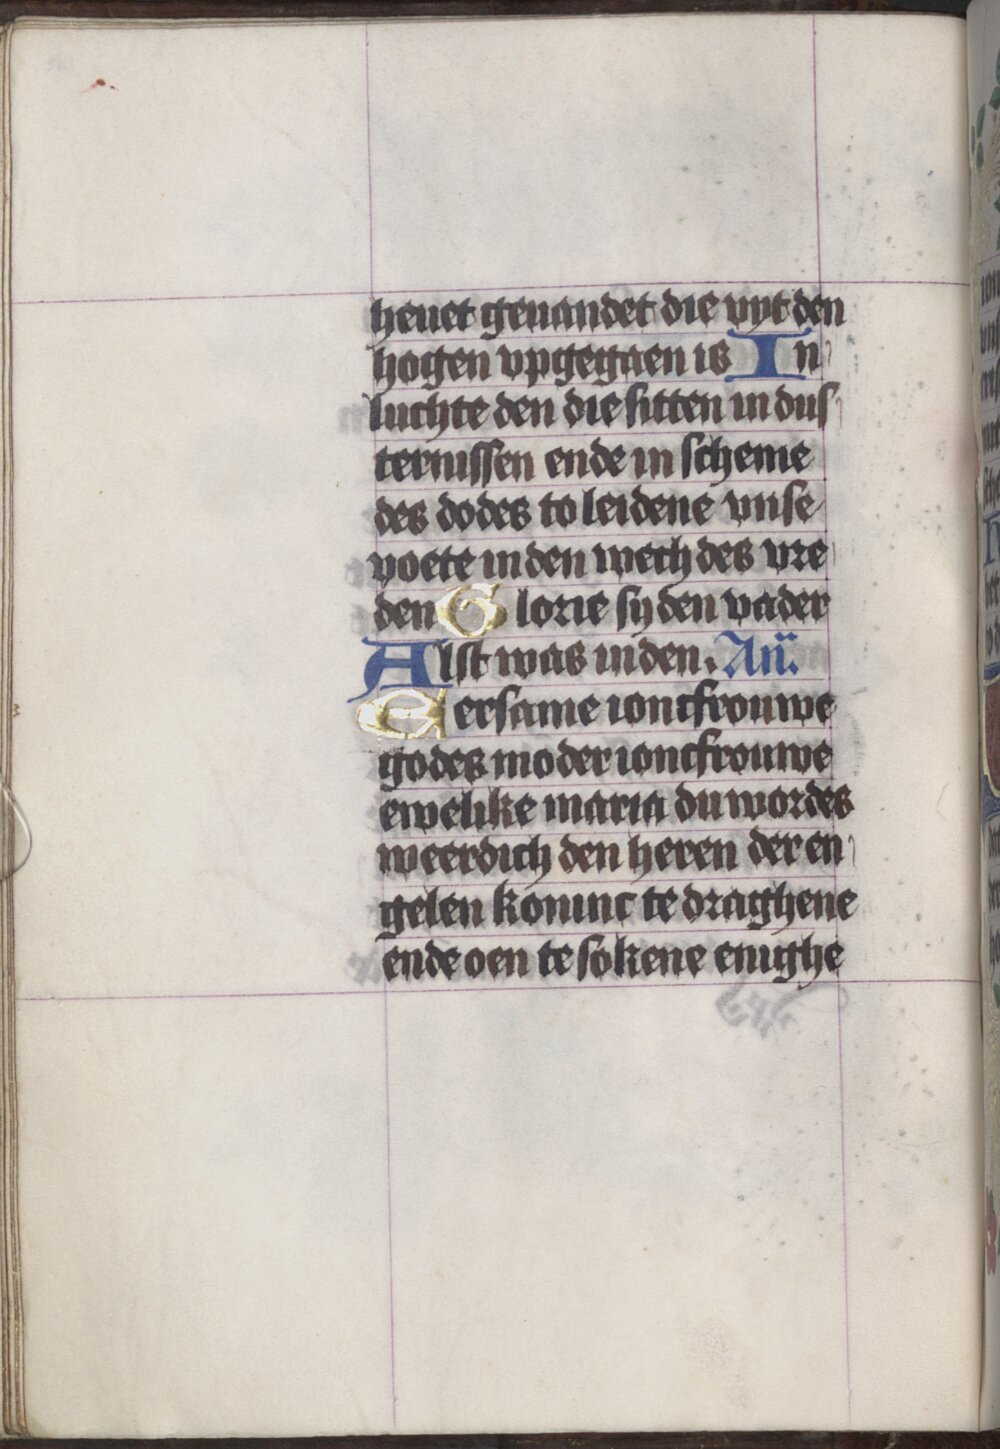 heuet geuandet die vyt den
hogen vpgegaen is In
luchte den die sitten in dus
ternissen ende in scheme
des dodes to leidene vnse
voete in den wech des vre
den Glorie sy den vader
Alst was in den. An.
Eersame ioncfrouwe
godes moder ioncfrouwe
ewelike maria du wordes
weerdich den heren der en
gelen koninc te draghene
ende oen te sokene enighe